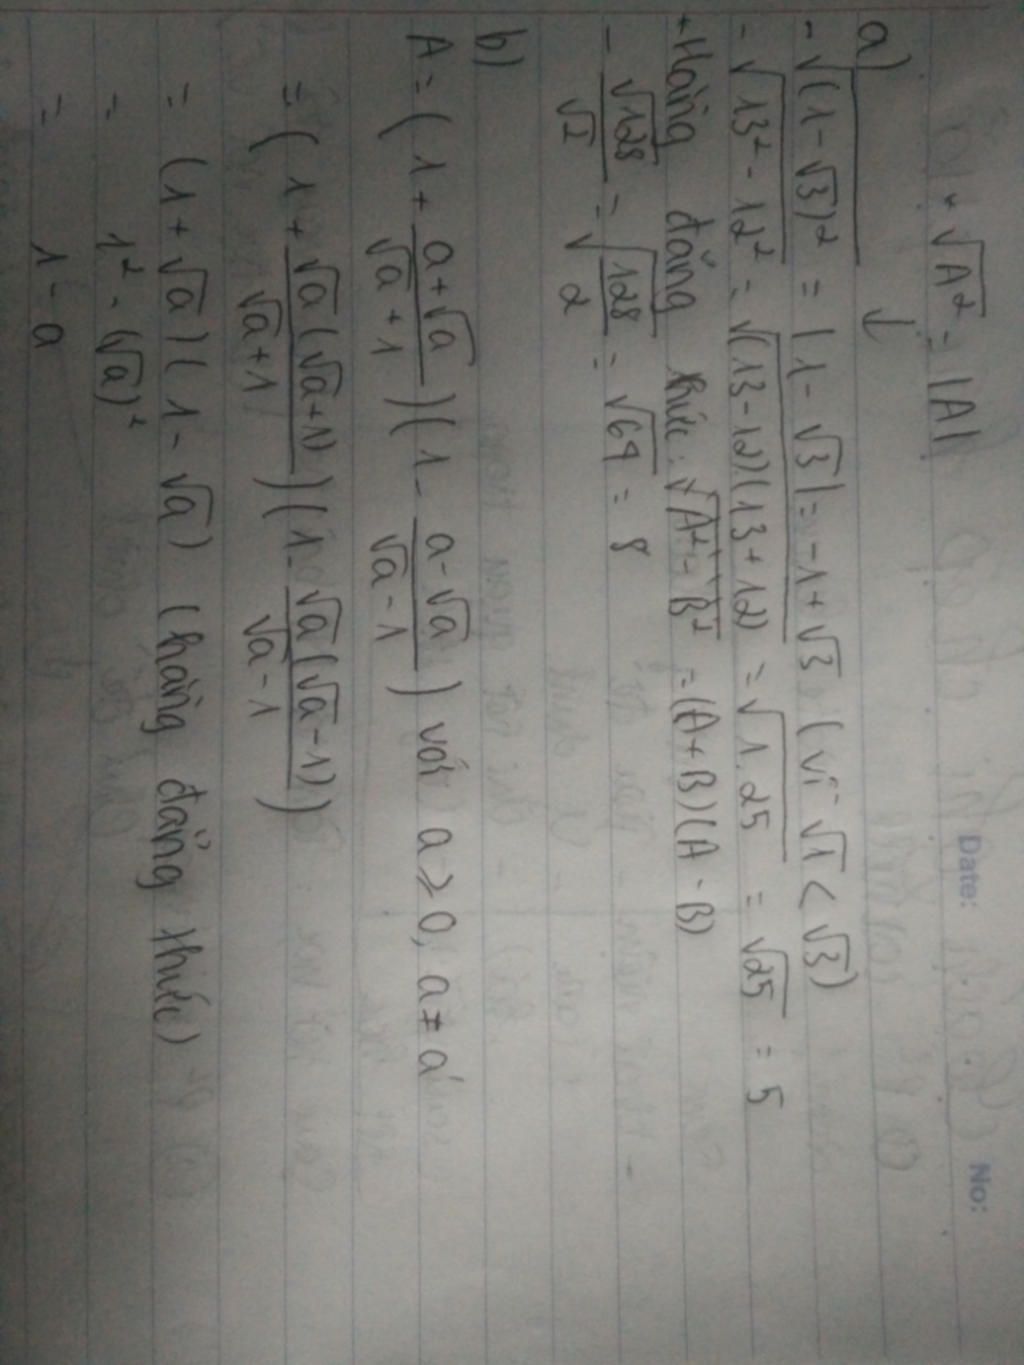 Date: No:
* √A² = |A|
a) ↓
- √(1-√3)² = |1-√3| = -1+√3 (vì √1 < √3)
- √13² - 12² = √(13-12)(13+12) = √1.25 = √25 = 5
+ Hằng đẳng thức: √A² - B² = (A+B)(A-B)
- √128/√2 = √128/2 = √64 = 8
b)
A = (1 + a+√a/√a+1)(1 - a-√a/√a-1) với a≥0, a≠a
= (1 + √a(√a+1)/√a+1)(1 - √a(√a-1)/√a-1)
= (1+√a)(1-√a) (hằng đẳng thức)
= 1² - (√a)²
= 1-a